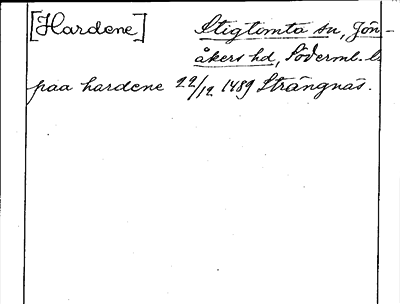 [Hardene] Stigtomta sn, Jön-
åkers hd, Söderml. l.
paa hardene 22/12 1489 Strängnäs.